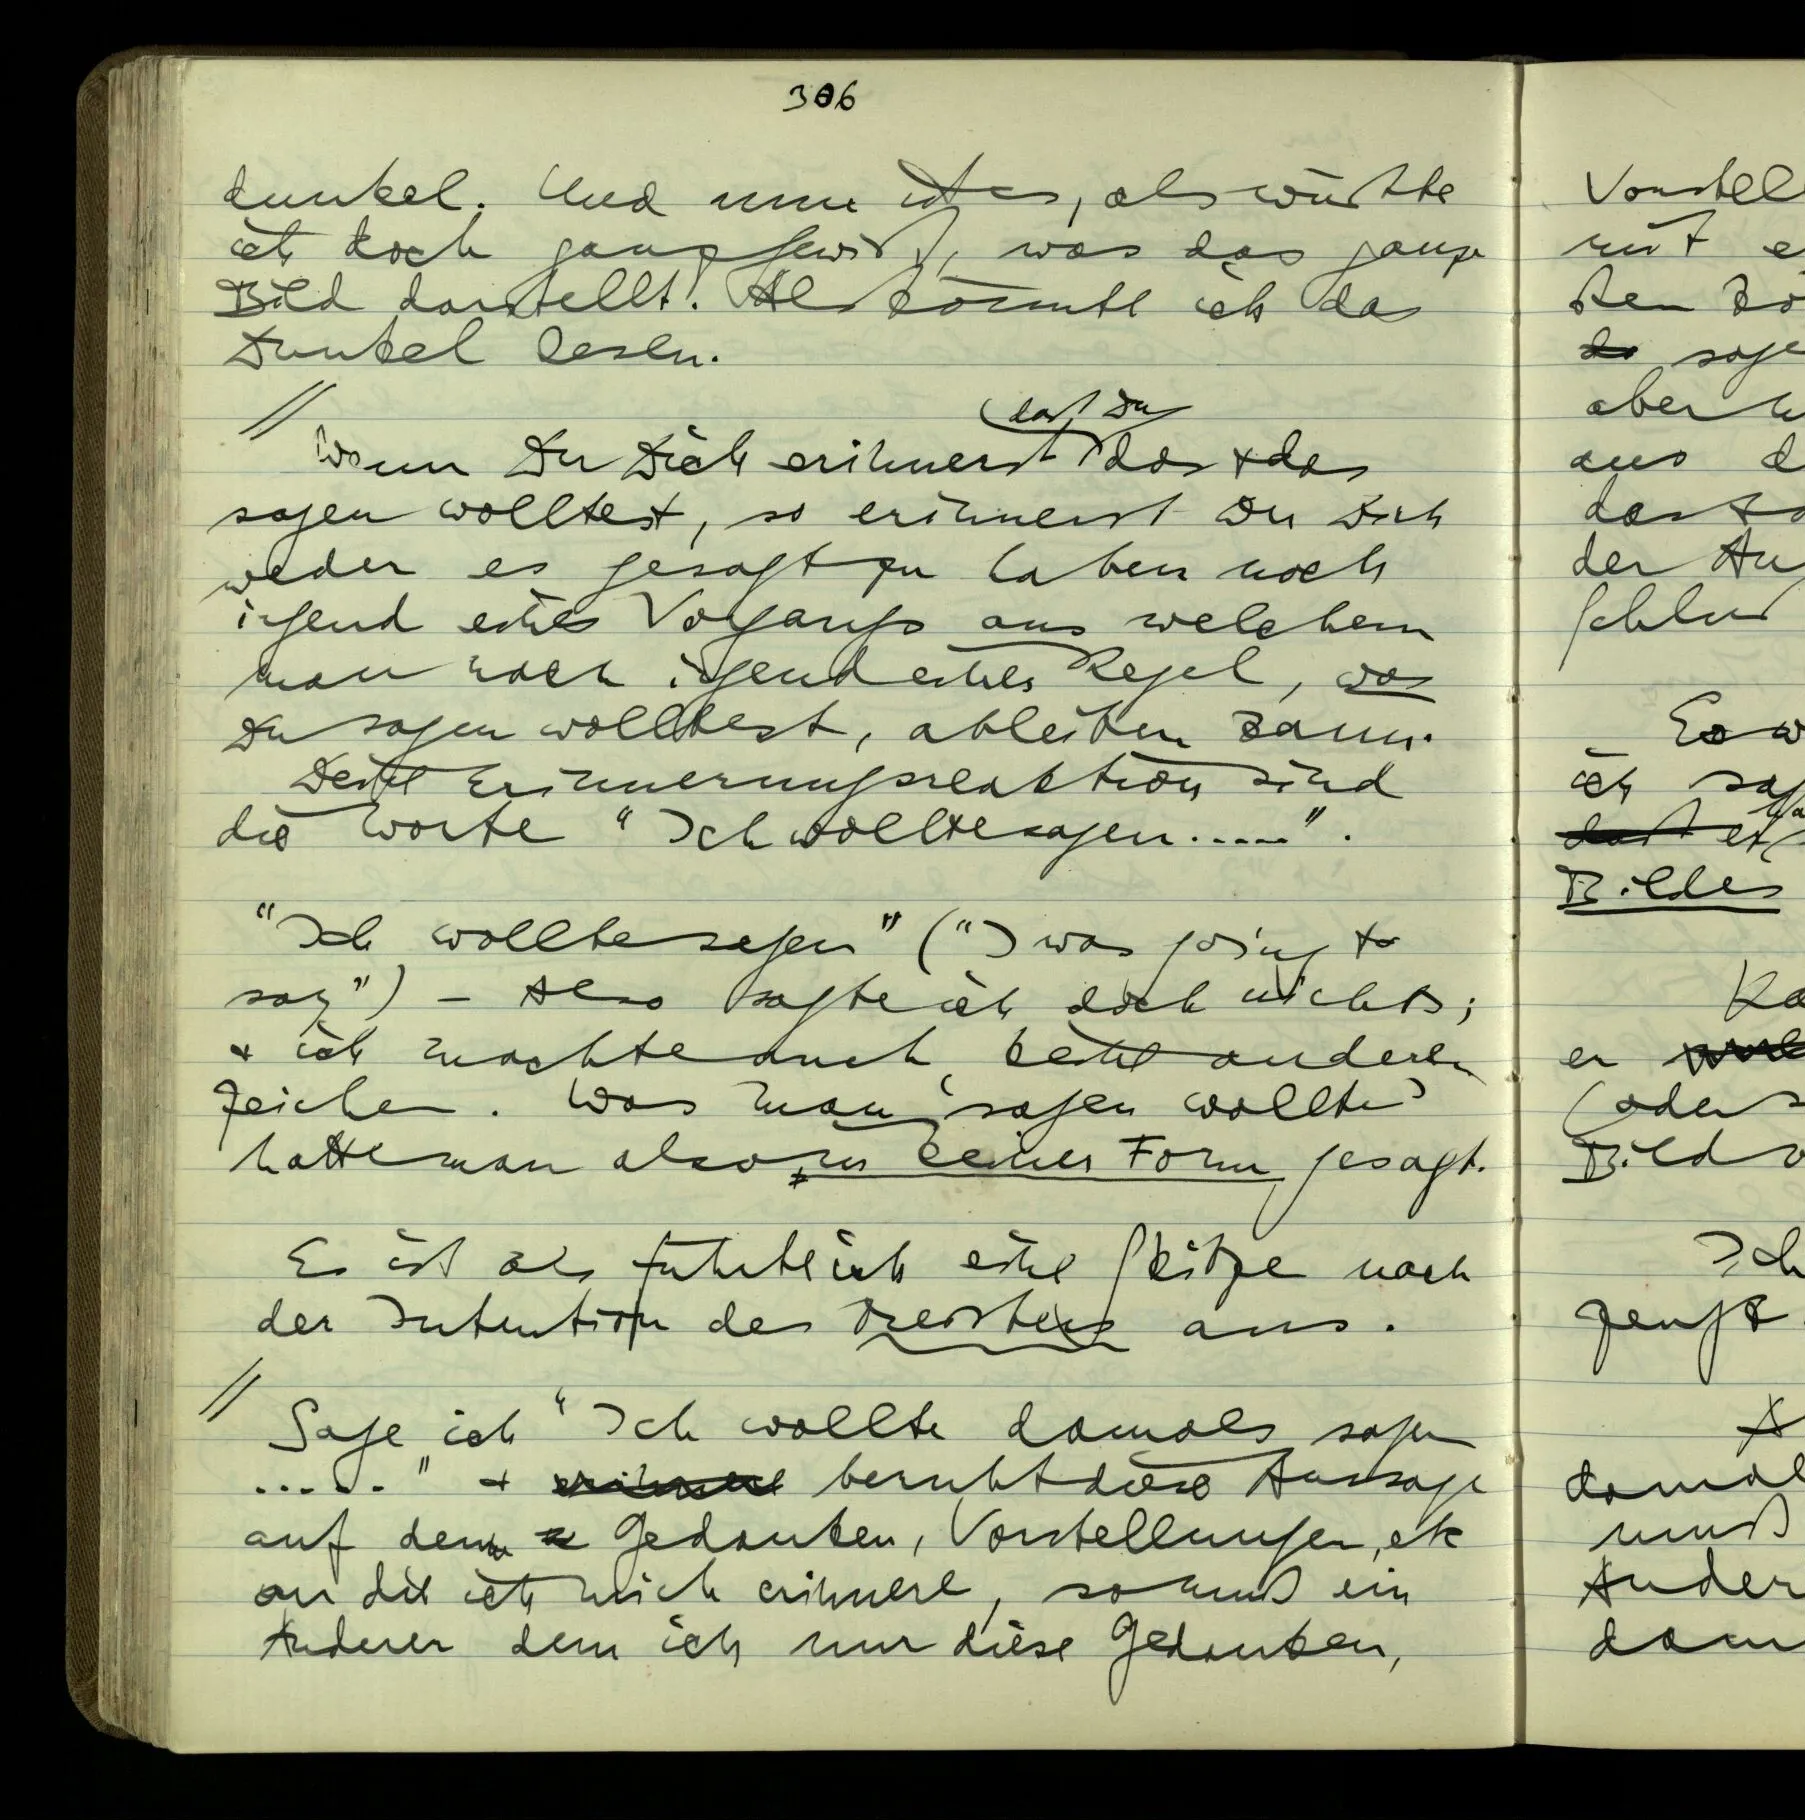 306
dunkel. Und nun ist es, als wüßte
ich doch ganz gewiß, was das ganze
Bild darstellt. Als könnte ich das
Dunkel lesen.
//
daß Du
Wenn Du Dich erinnerst das + das
sagen wolltest, so erinnerst Du Dich
weder es gesagt zu haben noch
irgend eines Vorgangs aus welchem
man nach irgend einer Regel, was
Du sagen wolltest, ableiten kann.
Deine Erinnerungsreaktion sind
die Worte "Ich wollte sagen.....".
"Ich wollte sagen" ("I was going to
say") – Also sagte ich doch nichts;
+ ich machte auch keine anderen
Zeichen. Was man 'sagen wollte'
hatte man also in keiner Form gesagt.
Es ist als führte ich eine Skizze nach
der Intention des Meisters aus.
//
Sage ich "Ich wollte damals sagen
....." + erinnere beruht diese Aussage
auf den Gedanken, Vorstellungen, etc
an die ich mich erinnere, so muß ein
Anderer dem ich nur diese Gedanken,
Vorstell
mit e
sten kö
da sage
aber w
aus d
das
der Au
Es w
ich sag
Bildes
Ka
er
(oder s
Bild v
Ich
zeugt.
A
damal
muß
Ander
dam